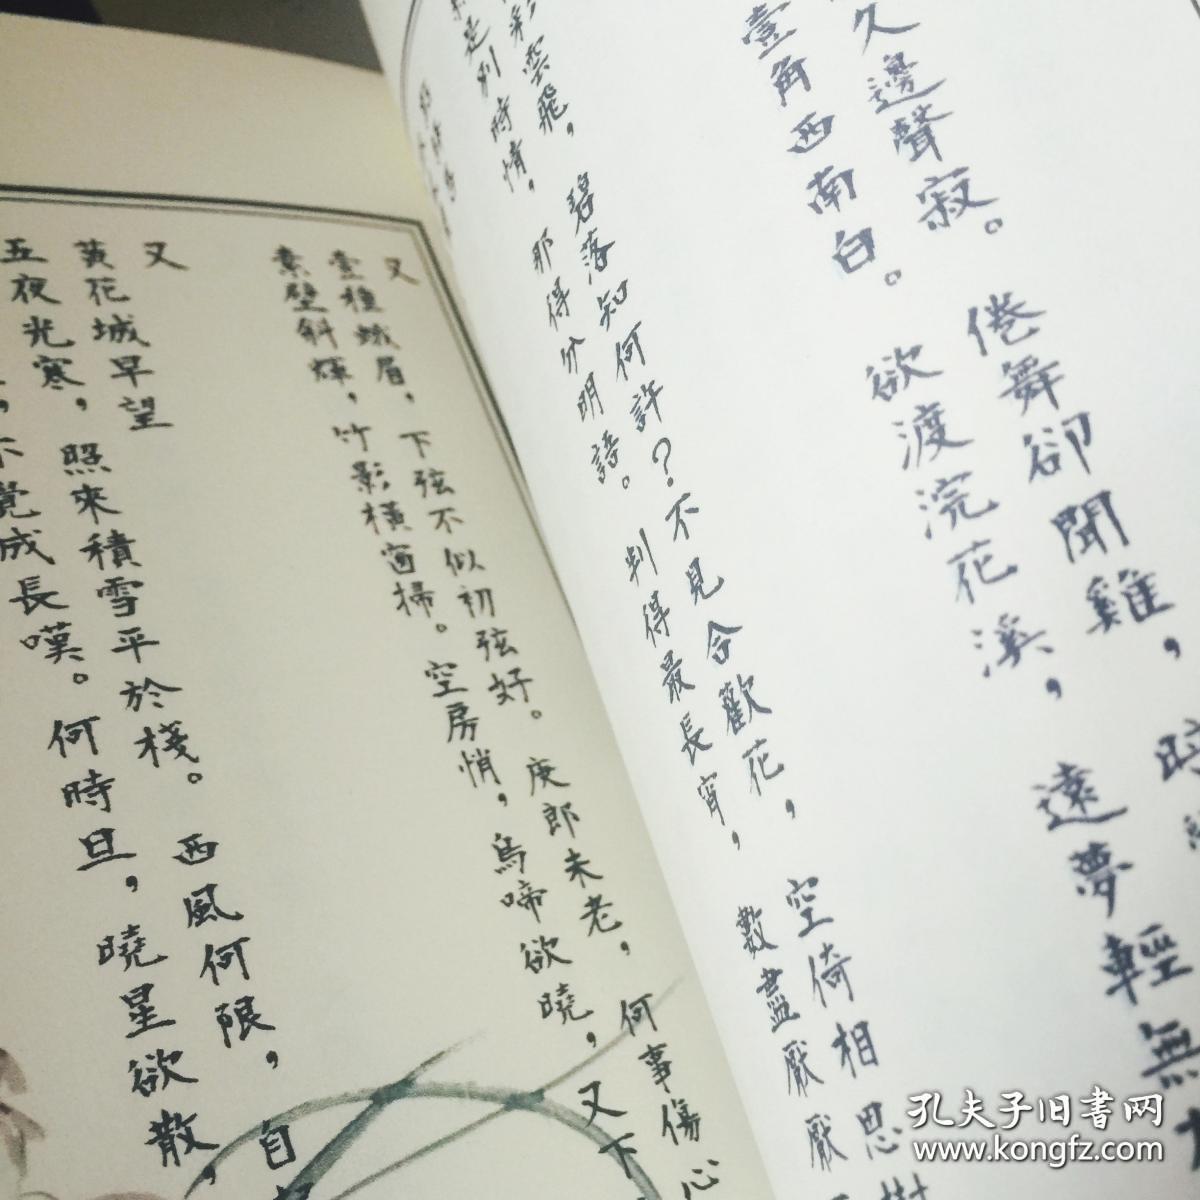 久邊聲寂。倦舞卻聞雞，
壹角西南白。欲渡浣花溪，遠夢輕無
彩雲飛，碧落知何許？不見合歡花，空倚相思
是別時情，那得分明語。判得最長宵，數盡厭厭
又
壹種蛾眉，下弦不似初弦好。庾郎未老，何事傷心
素壁斜輝，竹影橫窗掃。空房悄，烏啼欲曉，又下
又
黃花城早望
五夜光寒，照來積雪平於棧。西風何限，自
，不覺成長嘆。何時旦，曉星欲散，
孔夫子旧書网
www.kongfz.com